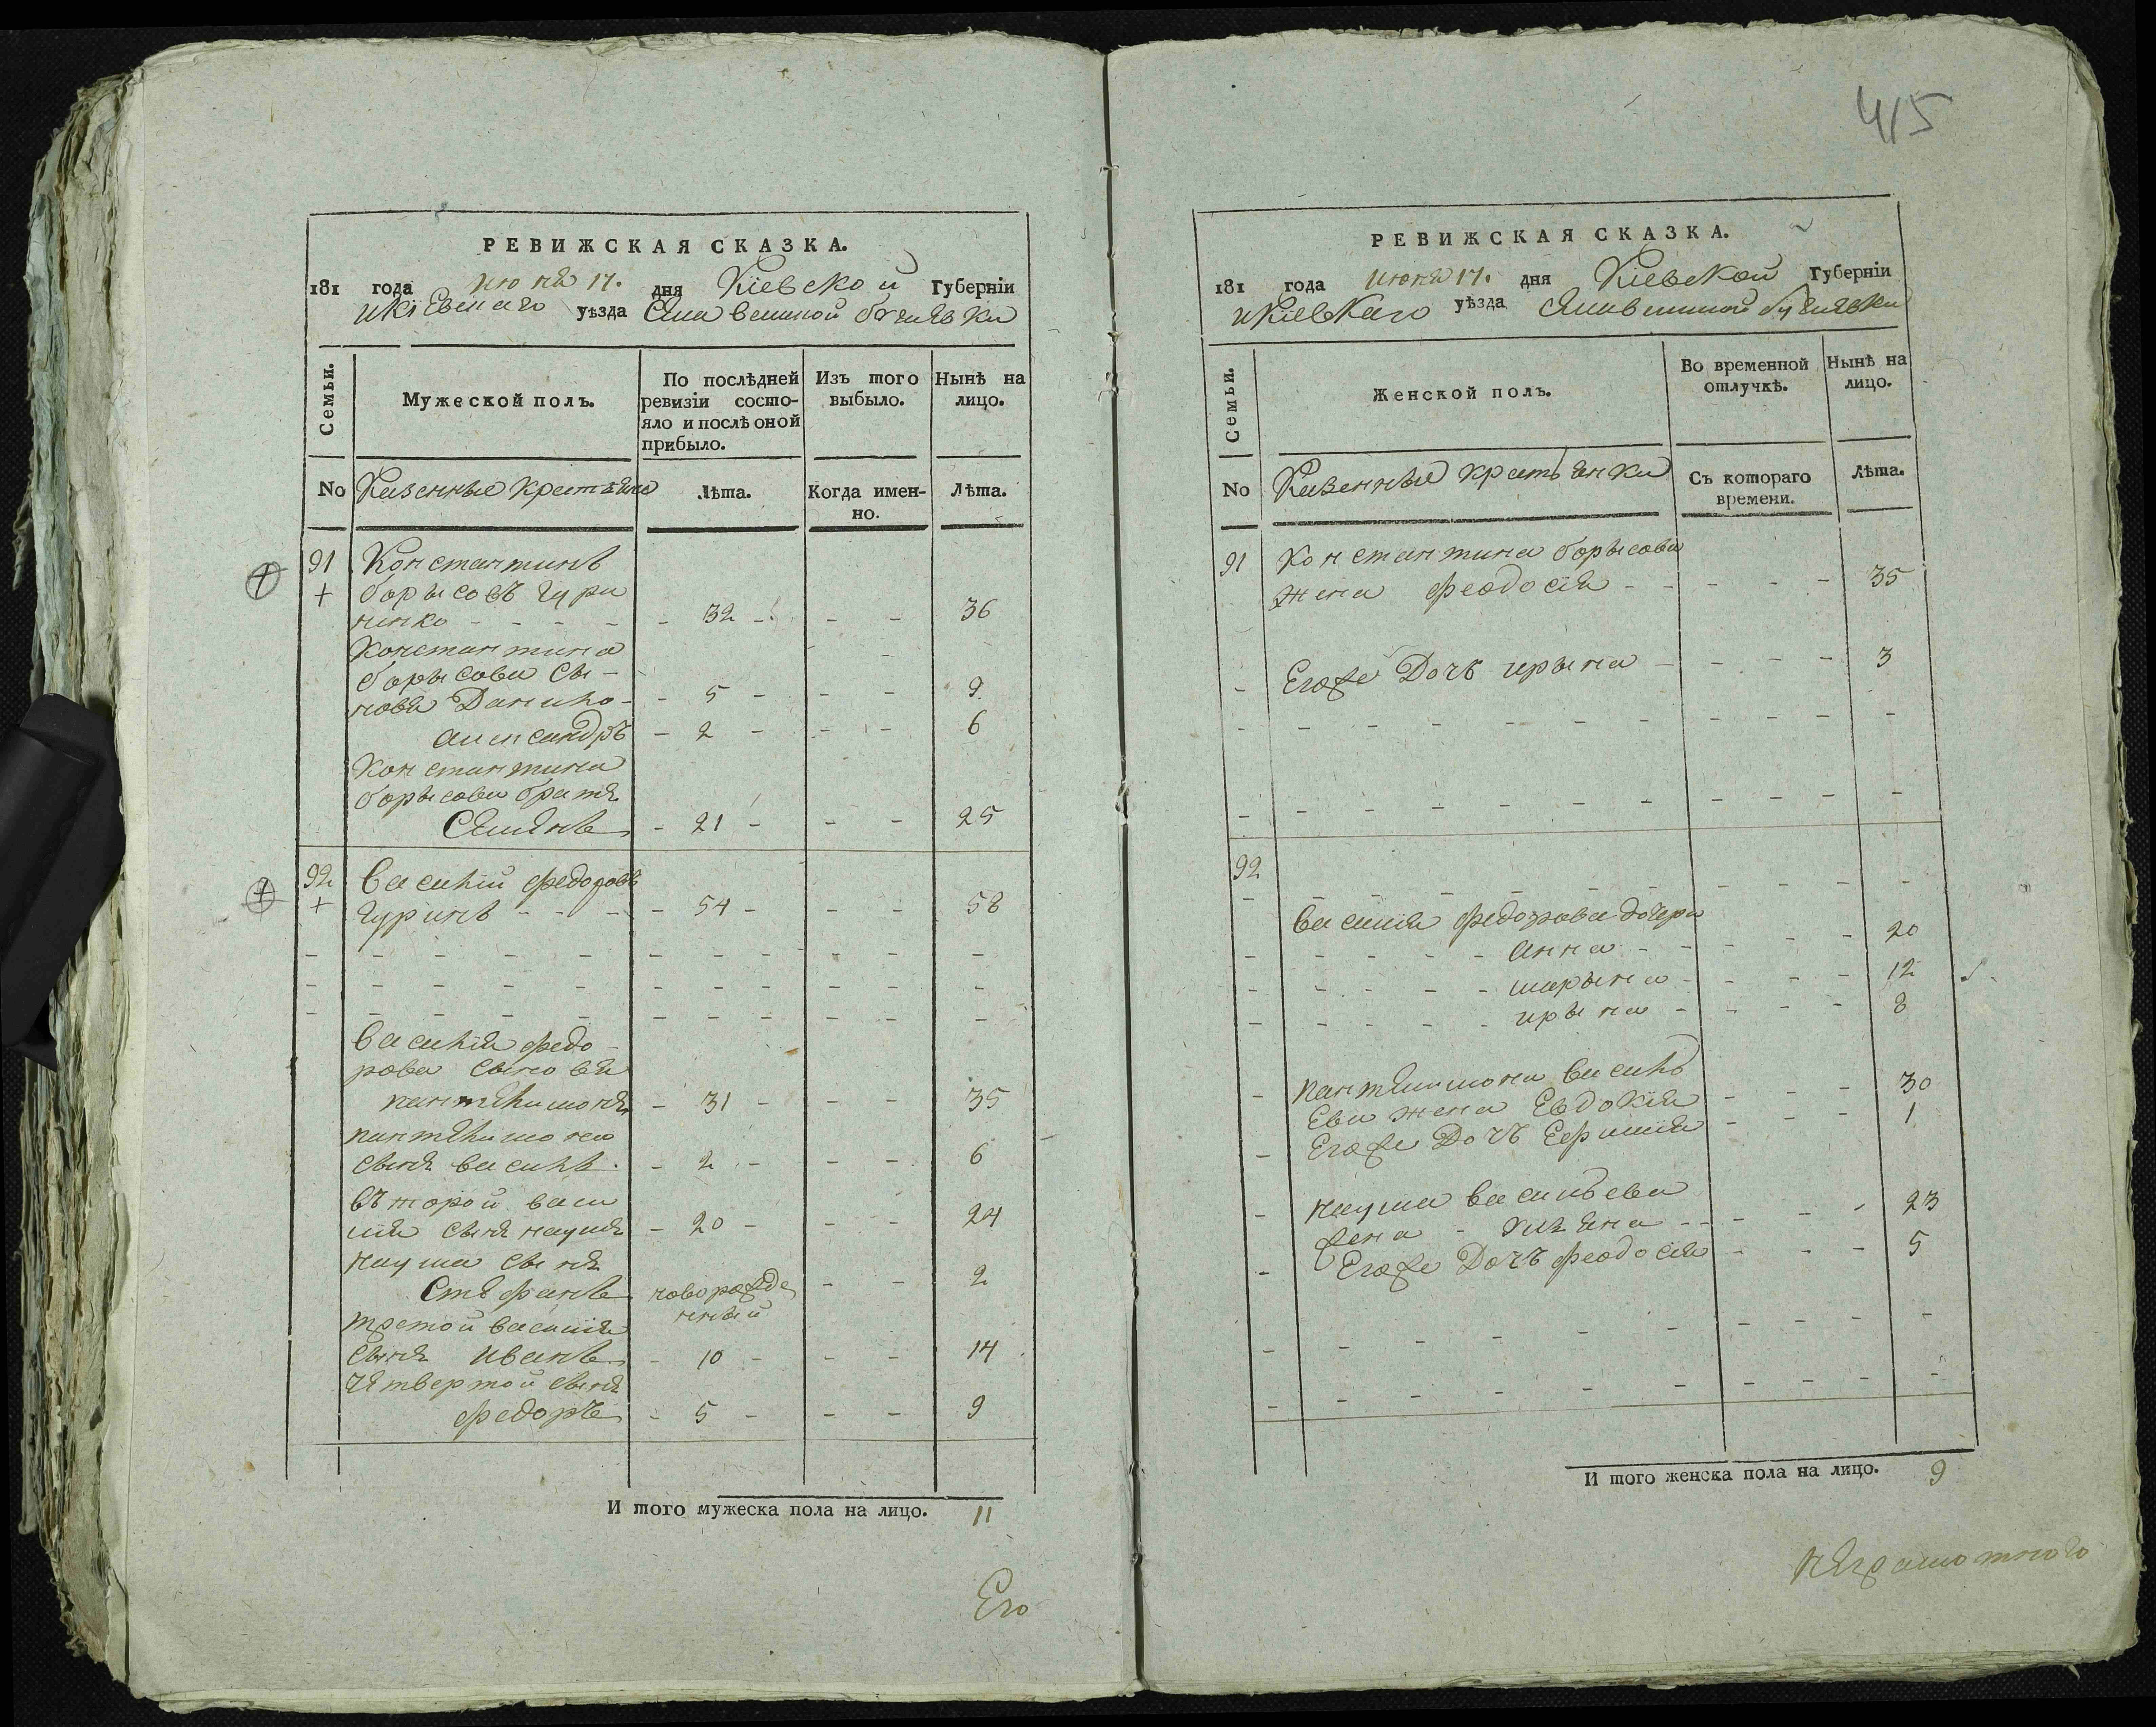 РЕВИЖСКАЯ СКАЗКА.
181 года июня 17. дня Кіевской Губерніи
икіевскаго уѣзда
Семьи.
Мужеской полъ.
По послѣдней ревизіи состояло и послѣ оной прибыло.
Изъ того выбыло.
Нынѣ на лицо.
No
Казенные крестьяне
Лѣта.
Когда именно.
Лѣта.
91 Константинъ
+ борысовъ гури
ненко - - - - - 32 - - - 36
Константина
борысова сы -
новя Данило - - 5 - - - 9
александръ - 2 - - - 6
Константина
борысова братя
Семенъ - 21 - - - 25
92 Василий федоровъ
+ гуринъ - - - - 54 - - - 58
Василия федо -
рова сыновя
пантелимонъ - 31 - - - 35
пантелимона
сынъ василь - 2 - - - 6
въторой васи
лия сынъ наумъ - 20 - - - 24
наума сынъ
Стефанъ новорожде - - 2
нный
третой василия
сынъ иванъ - 10 - - - 14
четвертой сынъ
федоръ - 5 - - - 9
И того мужеска пола на лицо. 11
Его
415
РЕВИЖСКАЯ СКАЗКА.
181 года июня 17. дня Кіевской Губерніи
икіевскаго уѣзда
Семьи.
Женской полъ.
Во временной отлучкѣ.
Нынѣ на лицо.
No
Казенные крестьянки
Съ котораго времени.
Лѣта.
91 Константина борысова
жена феодосія - - - - - 35
- Егоже Дочь ирына - - - - 3
92
Василия федорова дочери
- - - - - анна - - - - - 20
- - - - - марына - - - - 12
- - - - - ирына - - - - 8
- пантелимона василь
ева жена Евдокия - - - 30
- Егоже Дочь Ефимия - - - 1
- наума васильева
жена - - - - - 23
- Егоже Дочь феодосия - - - 5
И того женска пола на лицо. 9
неграмотного